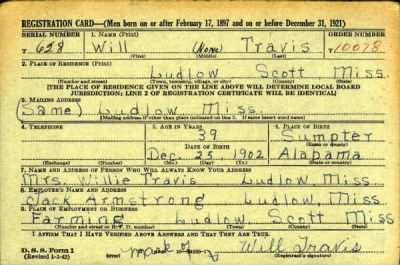 REGISTRATION CARD—(Men born on or after February 17, 1897 and on or before December 31, 1921)
SERIAL NUMBER 1. NAME (Print) ORDER NUMBER
T 628 Will (None) Travis T10078
(First) (Middle) (Last)
2. PLACE OF RESIDENCE (Print)
Ludlow Scott Miss.
(Number and street) (Town, township, village, or city) (County) (State)
[THE PLACE OF RESIDENCE GIVEN ON THE LINE ABOVE WILL DETERMINE LOCAL BOARD
JURISDICTION; LINE 2 OF REGISTRATION CERTIFICATE WILL BE IDENTICAL]
3. MAILING ADDRESS
(Same) Ludlow Miss.
[Mailing address if other than place indicated on line 2. If same insert word same]
4. TELEPHONE 5. AGE IN YEARS 6. PLACE OF BIRTH
39 Sumpter
DATE OF BIRTH (Town or county)
Dec. 25, 1902 Alabama
(Exchange) (Number) (Mo.) (Day) (Yr.) (State or country)
7. NAME AND ADDRESS OF PERSON WHO WILL ALWAYS KNOW YOUR ADDRESS
Mrs. Willie Travis Ludlow, Miss.
8. EMPLOYER'S NAME AND ADDRESS
Jack Armstrong Ludlow, Miss
9. PLACE OF EMPLOYMENT OR BUSINESS
Farming Ludlow, Scott Miss
(Number and street or R. F. D. number) (Town) (County) (State)
I AFFIRM THAT I HAVE VERIFIED ABOVE ANSWERS AND THAT THEY ARE TRUE.
D. S. S. Form 1
(Revised 1-1-42) (over) mark of Will Travis
(Registrant's signature)